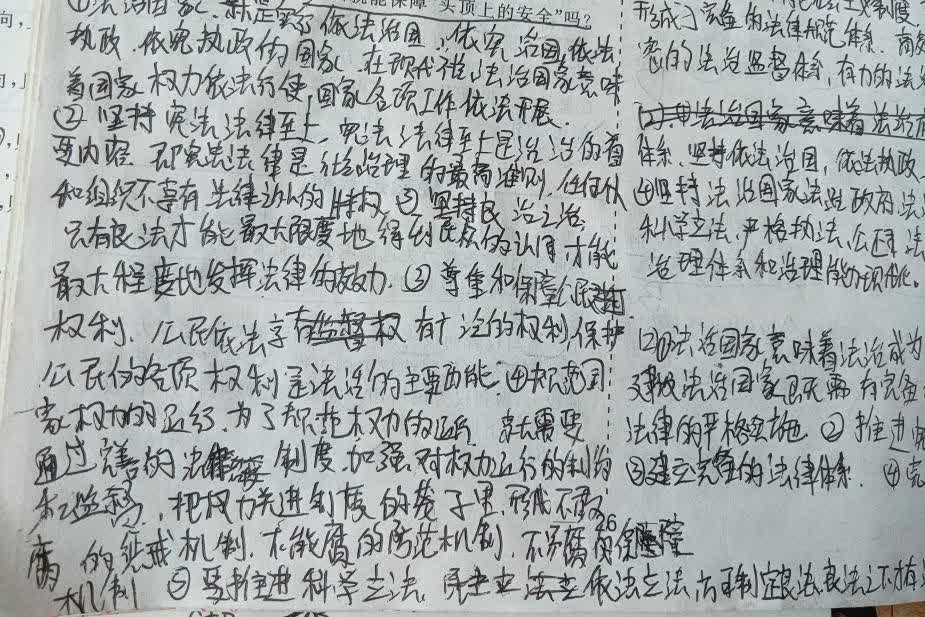 就能保障"头顶上的安全"吗?
①法治国家,就是实行依法治国、依宪治国,依法
执政、依宪执政的国家,在现代社会,法治国家意味
着国家权力依法行使,国家各项工作依法开展.
②坚持宪法法律至上,宪法法律至上是法治的首
要内容,即宪法法律是社会治理的最高准则,任何人
和组织不享有法律以外的特权.③坚持良法之治,
只有良法才能最大限度地得到民众的认同,才能
最大程度地发挥法律的效力.③尊重和保障公民
权利,公民依法享有广泛的权利,保护
公民的各项权利是法治的主要功能.④规范国
家权力的运行,为了规范权力的运行,就需要
通过完善的法律制度,加强对权力运行的制约
和监督,把权力关进制度的笼子里,形成不敢
腐的惩戒机制,不能腐的防范机制,不易腐的保障
机制
⑤要推进科学立法,民主立法、依法立法,
形成了完备的法律规范体系,高效
的法治监督体系,有力的法
法治国家意味着法治
体系,坚持依法治国,依法执政
④坚持法治国家法治政府法
科学立法,严格执法,公正司法
治理体系和治理能力现代化.
(2)①法治国家意味着法治成为
法治国家既需有完备
法律的严格实施 ②推进
③建立完备的法律体系. ④完
26